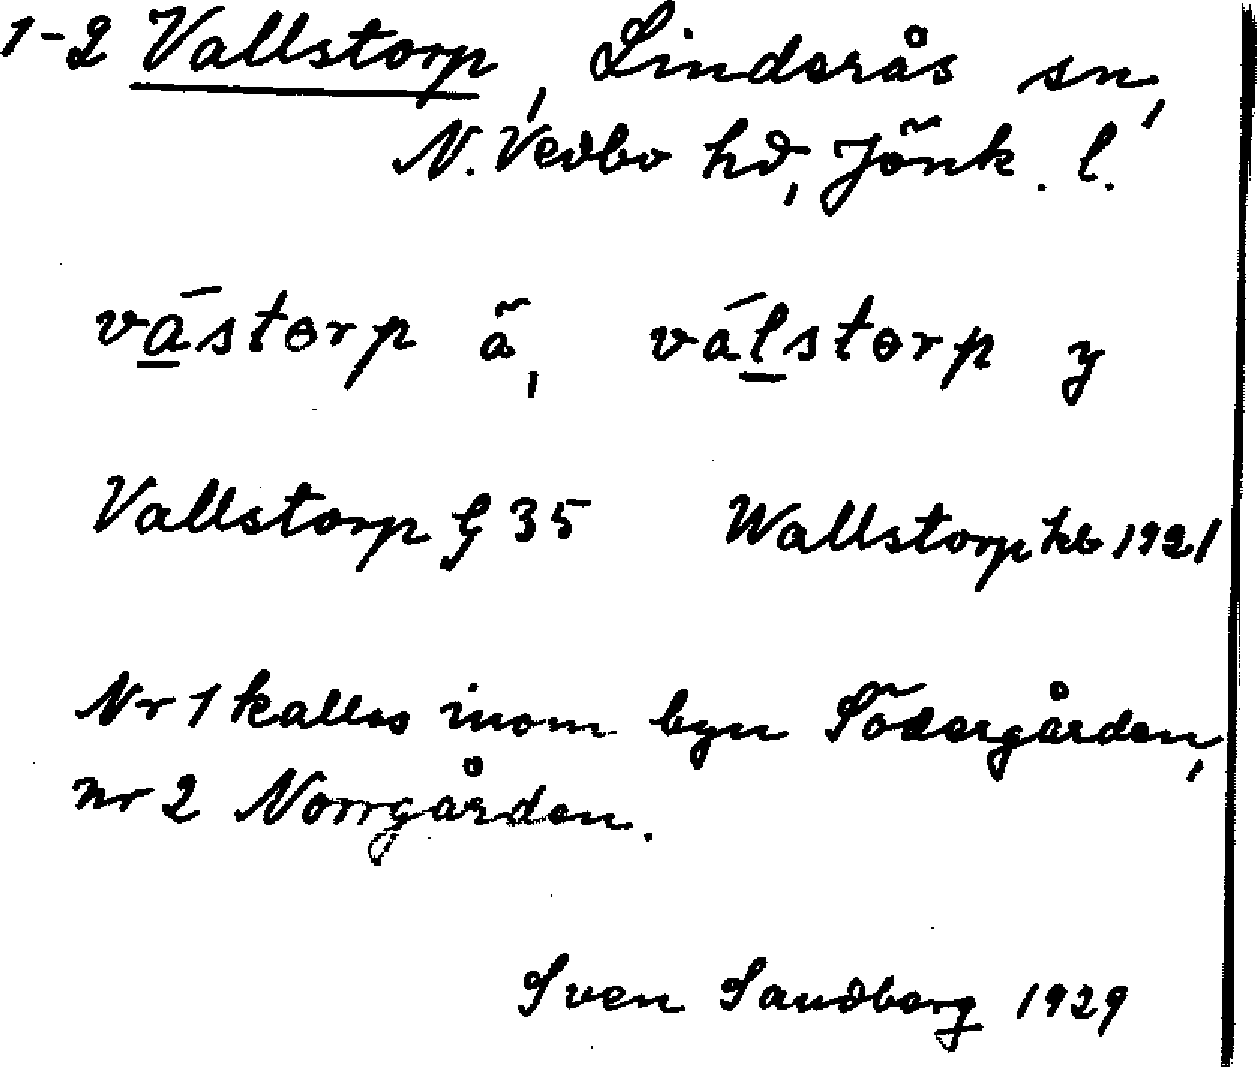 1-2 Vallstorp, Linderås sn,
N. Vedbo hd, Jönk. l.
vástorp ä, válstorp y
Vallstorp G 35 Wallstorp kb 1921
Nr 1 kallas inom byn Södergården,
nr 2 Norrgården.
Sven Sandberg 1929